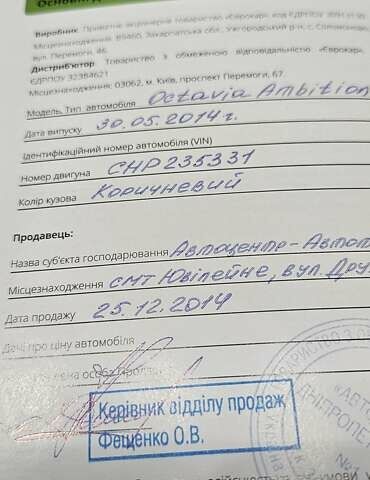 Виробник Приватне акціонерне товариство «Єврокар», код ЄДРПОУ
Місцезнаходження: 89460, Закарпатська обл., Ужгородський р-н, с. Соломоново,
вул. Перемоги, 46
Дистриб'ютор Товариство з обмеженою відповідальністю «Єврокар»,
ЄДРПОУ 32384621
Місцезнаходження: 03062, м. Київ, проспект Перемоги, 67.
Модель, Тип автомобіля Octavia Ambition
Дата випуску 30.05.2014 г.
Ідентифікаційний номер автомобіля (VIN)
Номер двигуна CHP235331
Колір кузова Коричневий
Продавець:
Назва суб'єкта господарювання Автоцентр-Автот
Місцезнаходження смт Ювілейне, вул. Дру
Дата продажу 25.12.2014
Дані про ціну автомобіля
Керівник відділу продаж
Фещенко О.В.